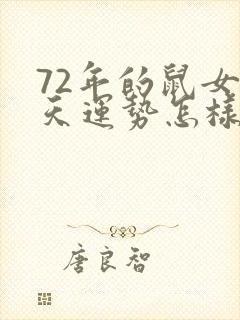 72年的鼠女
天运势怎样
唐良智